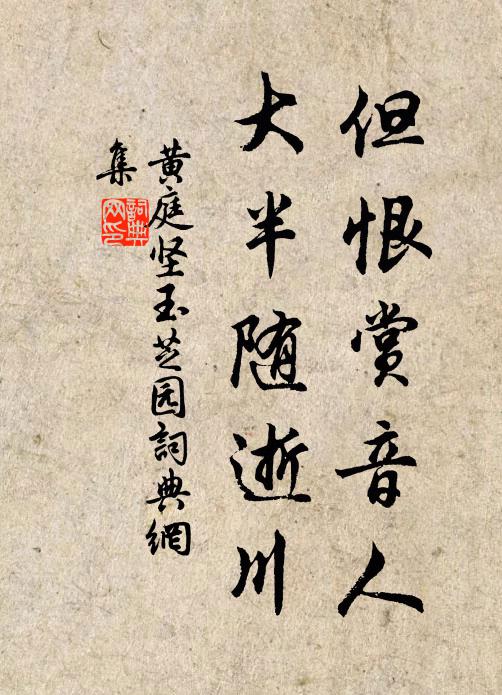 但恨赏音人
大半随逝川
黄庭坚玉芝园詞典網
集
詞典
网印